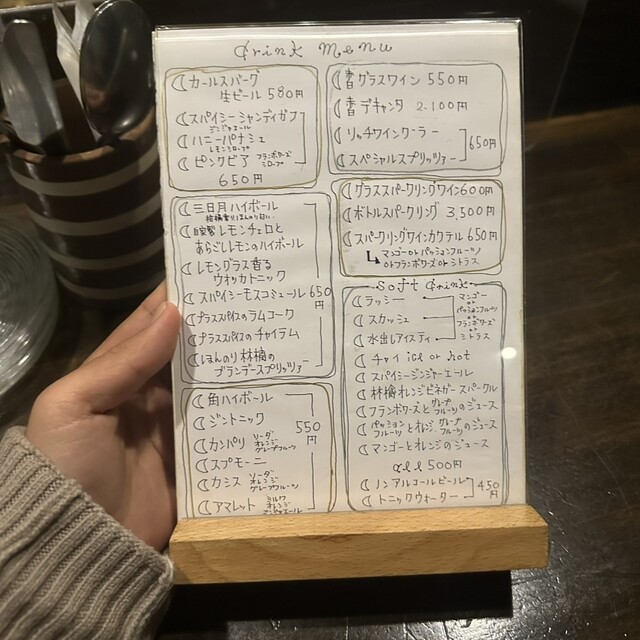 drink menu
カールスバーグ
生ビール 580円
スパイシーシャンディガフ
ジンジャエール
ハニーパナシェ
レモンソーダ
ピンクビア フランボワーズ
650円
三日月ハイボール
自家製レモンチェロと
あらごしレモンのハイボール
レモングラス香る
ウオッカトニック
スパイシーモスコミュール 650円
プラススパイスのラムコーク
プラススパイスのチャイラム
ほんのり林檎の
ブランデースプリッツァー
角ハイボール
ジントニック
550円
カンパリ ソーダ
オレンジ
グレープフルーツ
スプモーニ
カシス ソーダ
オレンジ
グレープフルーツ
アマレット ミルク
オレンジ
グラスワイン 550円
デキャンタ 2.100円
リッチワインクーラー
650円
スペシャルスプリッツァー
グラススパークリングワイン600円
ボトルスパークリング 3,500円
スパークリングワインカクテル 650円
マンゴー or パッションフルーツ
or フランボワーズ or シトラス
soft drink
ラッシー
スカッシュ
水出しアイスティ
マンゴー
パッションフルーツ
フランボワーズ
シトラス
チャイ ice or hot
スパイシージンジャーエール
林檎オレンジビネガースパークル
フランボワーズとグレープフルーツのジュース
パッションフルーツとオレンジ グレープフルーツのジュース
マンゴーとオレンジのジュース
all 500円
ノンアルコールビール
450円
トニックウォーター